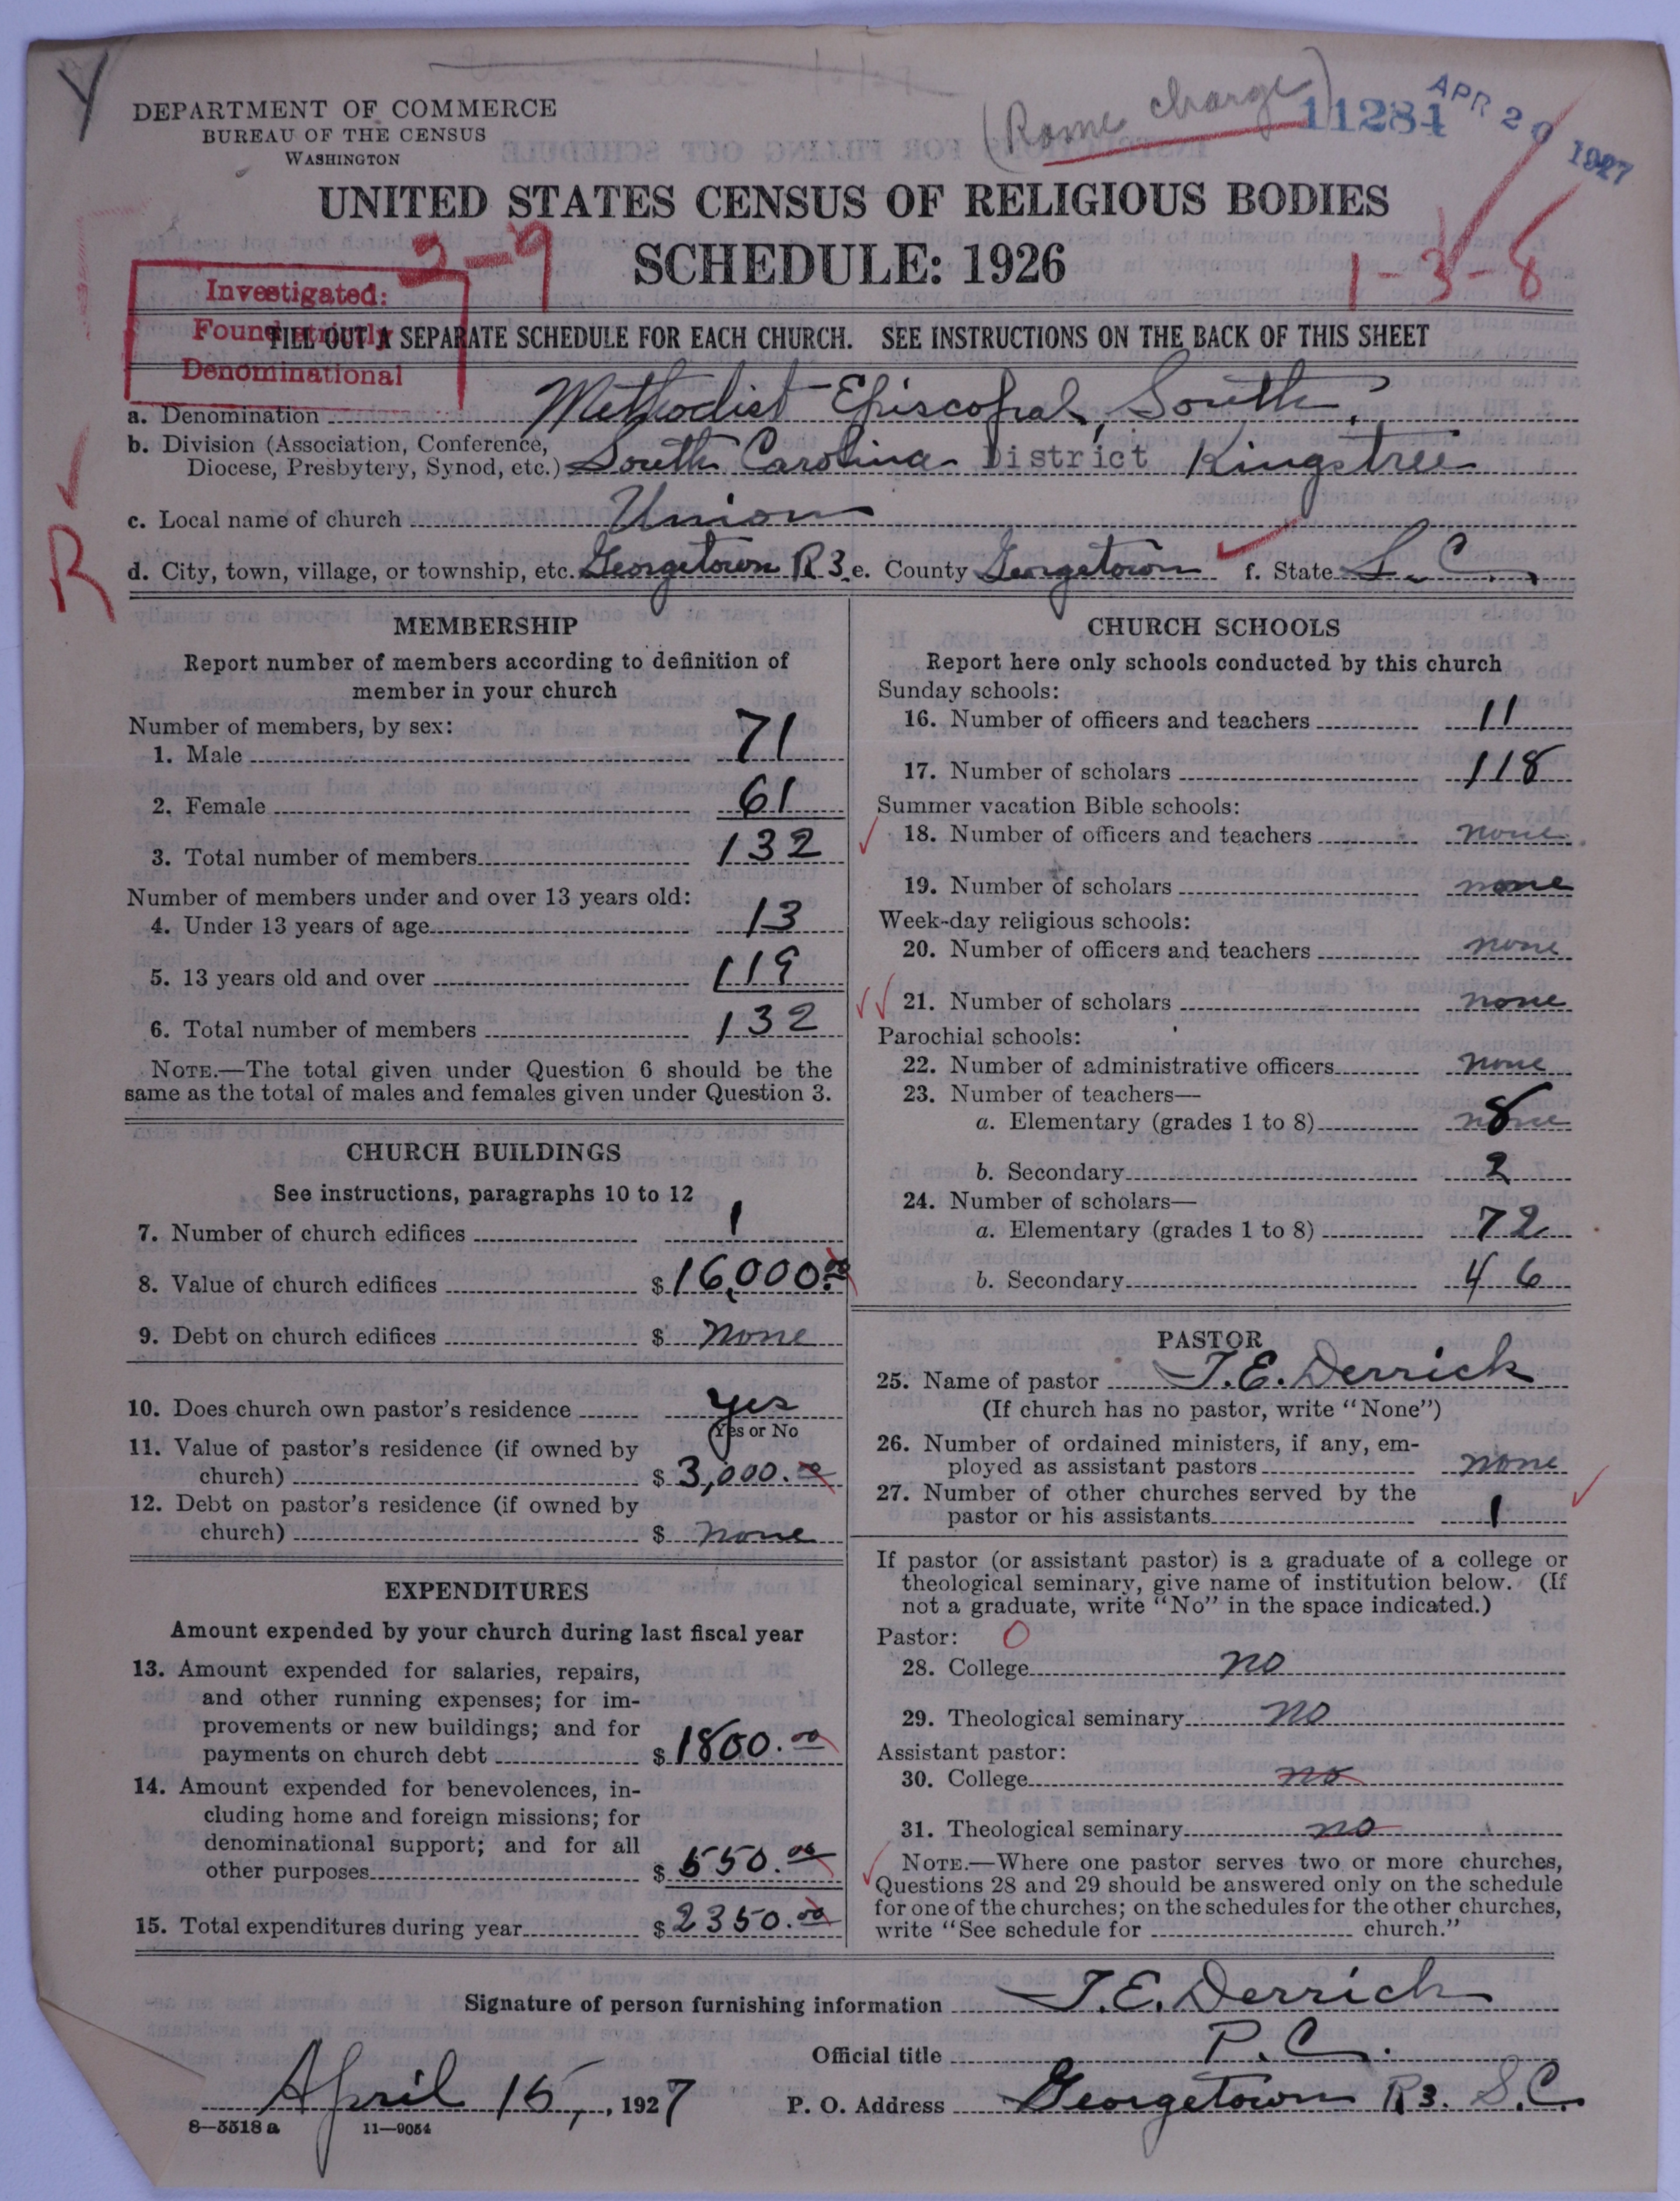 DEPARTMENT OF COMMERCE
BUREAU OF THE CENSUS
WASHINGTON
(Rome charge)
11284
APR 20 1927
UNITED STATES CENSUS OF RELIGIOUS BODIES
SCHEDULE: 1926
3-9
1-3-8
Investigated:
Found strictly
Denominational
FILL OUT A SEPARATE SCHEDULE FOR EACH CHURCH. SEE INSTRUCTIONS ON THE BACK OF THIS SHEET
a. Denomination Methodist Episcopal, South.
b. Division (Association, Conference,
Diocese, Presbytery, Synod, etc.) South Carolina District Kingstree
c. Local name of church Union
R
d. City, town, village, or township, etc. Georgetown R 3 e. County Georgetown f. State S. C.
MEMBERSHIP
Report number of members according to definition of
member in your church
Number of members, by sex:
1. Male 71
2. Female 61
3. Total number of members 132
Number of members under and over 13 years old:
4. Under 13 years of age 13
5. 13 years old and over 119
6. Total number of members 132
NOTE.—The total given under Question 6 should be the
same as the total of males and females given under Question 3.
CHURCH BUILDINGS
See instructions, paragraphs 10 to 12
7. Number of church edifices 1
8. Value of church edifices $16,000.00
9. Debt on church edifices $ none
10. Does church own pastor's residence yes
Yes or No
11. Value of pastor's residence (if owned by
church) $3,000.00
12. Debt on pastor's residence (if owned by
church) $ none
EXPENDITURES
Amount expended by your church during last fiscal year
13. Amount expended for salaries, repairs,
and other running expenses; for im-
provements or new buildings; and for
payments on church debt $1800.00
14. Amount expended for benevolences, in-
cluding home and foreign missions; for
denominational support; and for all
other purposes $550.00
15. Total expenditures during year $2350.00
CHURCH SCHOOLS
Report here only schools conducted by this church
Sunday schools:
16. Number of officers and teachers 11
17. Number of scholars 118
Summer vacation Bible schools:
18. Number of officers and teachers none
19. Number of scholars none
Week-day religious schools:
20. Number of officers and teachers none
21. Number of scholars none
Parochial schools:
22. Number of administrative officers none
23. Number of teachers—
a. Elementary (grades 1 to 8) none 8
b. Secondary 2
24. Number of scholars—
a. Elementary (grades 1 to 8) 72
b. Secondary 46
PASTOR
25. Name of pastor T.E. Derrick
(If church has no pastor, write "None")
26. Number of ordained ministers, if any, em-
ployed as assistant pastors none
27. Number of other churches served by the
pastor or his assistants 1
If pastor (or assistant pastor) is a graduate of a college or
theological seminary, give name of institution below. (If
not a graduate, write "No" in the space indicated.)
Pastor: 0
28. College no
29. Theological seminary no
Assistant pastor:
30. College no
31. Theological seminary no
NOTE.—Where one pastor serves two or more churches,
Questions 28 and 29 should be answered only on the schedule
for one of the churches; on the schedules for the other churches,
write "See schedule for church."
Signature of person furnishing information T.E. Derrick
Official title P.C.
April 15, 1927 P. O. Address Georgetown R3. S.C.
8—5518a 11—9054